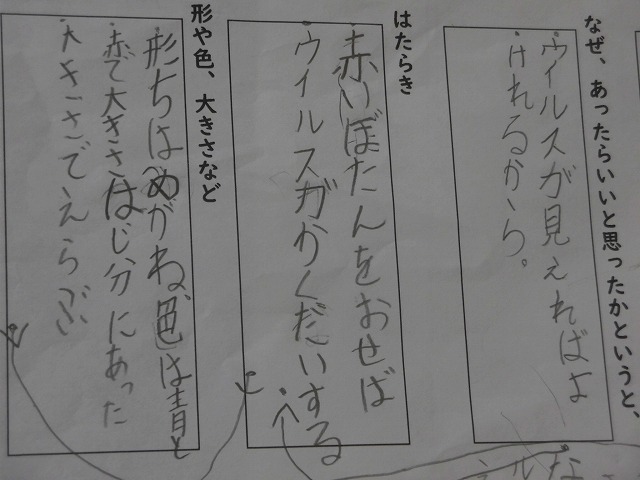 なぜ、あったらいいと思ったかというと、
ウイルスが見えればよ
けれるから。
はたらき
・赤いぼたんをおせば
・ウイルスがかくだいする
形や色、大きさなど
・形ちはめがね色は青と
・赤で大きさはじ分にあった
・大きさでえらぶ